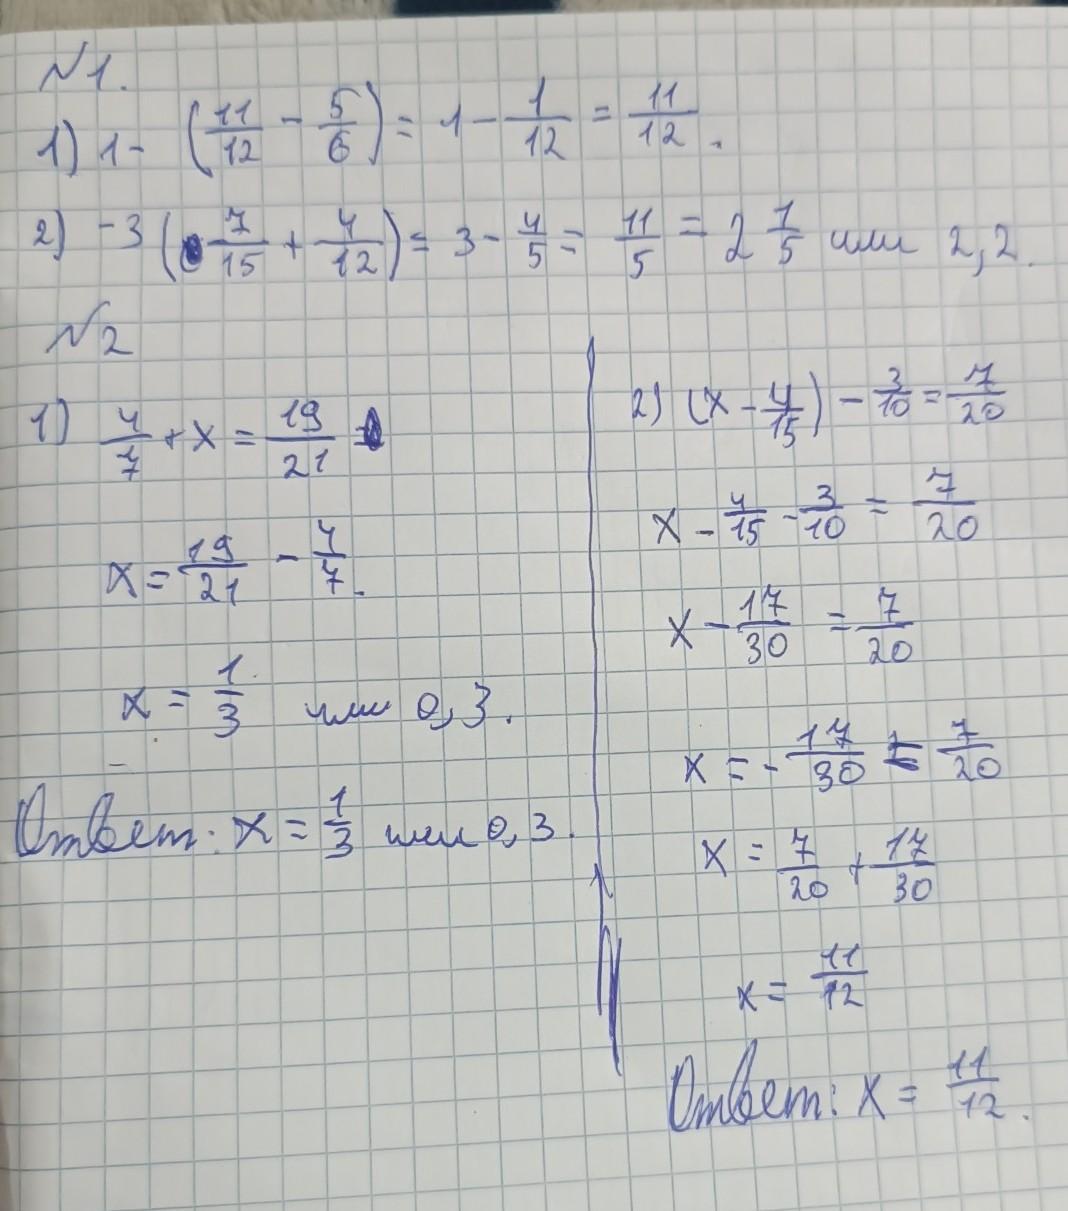 №1.
1) 1 - (11/12 - 5/6) = 1 - 1/12 = 11/12.
2) -3 (7/15 + 4/12) = 3 - 4/5 = 11/5 = 2 1/5 или 2,2.
№2
1) 4/7 + x = 19/21
x = 19/21 - 4/7.
x = 1/3 или 0,3.
Ответ: x = 1/3 или 0,3.
2) (x - 4/15) - 3/10 = 7/20
x - 4/15 - 3/10 = 7/20
x - 17/30 = 7/20
x = - 17/30 7/20
x = 7/20 + 17/30
x = 11/12
Ответ: x = 11/12.